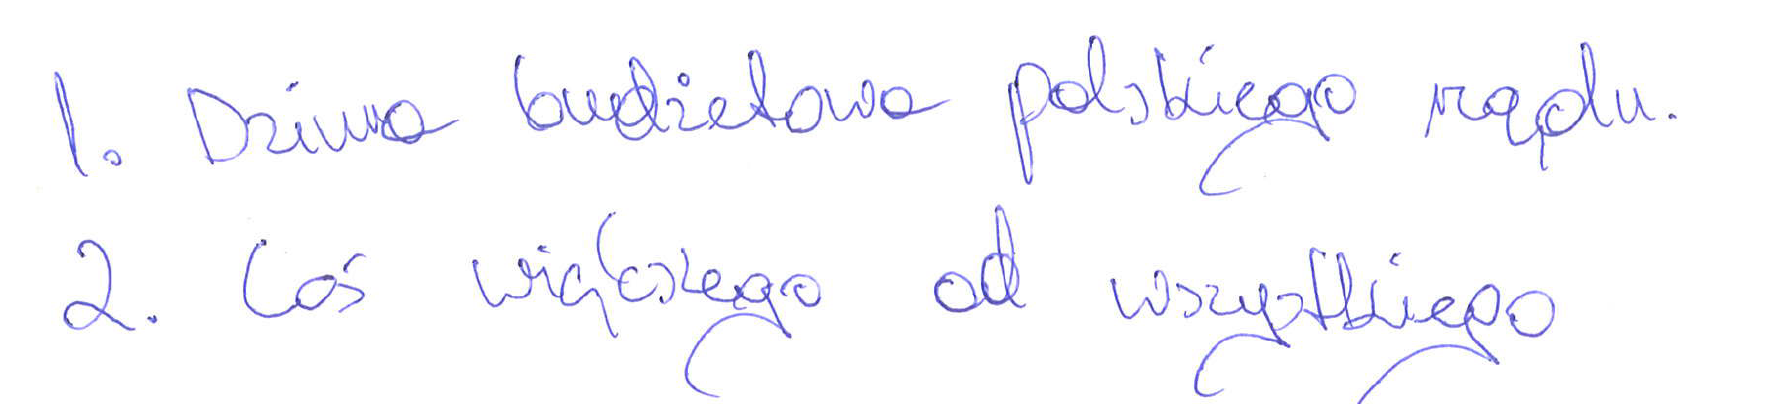 1. Dziura budżetowa polskiego rządu.
2. Coś większego od wszystkiego